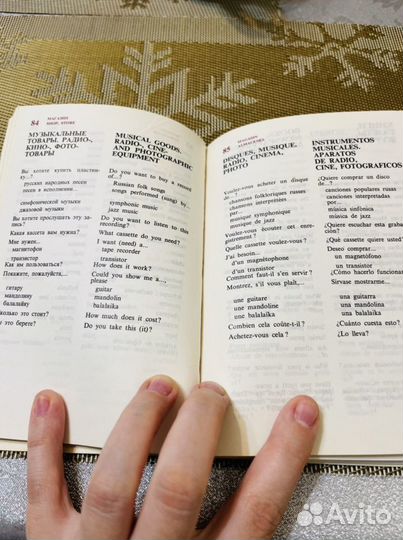 84
МАГАЗИН
SHOP, STORE
МУЗЫКАЛЬНЫЕ
ТОВАРЫ, РАДИО-,
КИНО-, ФОТО-
ТОВАРЫ
Вы хотите купить пластин-
ку...?
русских народных песен
песен в исполнении...
симфонической музыки
джазовой музыки
Вы хотите прослушать эту за-
пись?
Какая кассета вам нужна?
Мне нужен...
магнитофон
транзистор
Как им пользоваться?
Покажите, пожалуйста,...
гитару
мандолину
балалайку
колько это стоит?
это берете?
MUSICAL GOODS,
RADIO-, CINE-
AND PHOTOGRAPHIC
EQUIPMENT
Do you want to buy a record
of...?
Russian folk songs
songs performed (sung) by...
symphonic music
jazz music
Do you want to listen to this
recording?
What cassette do you need?
I want (need) a...
tape recorder
transistor
How does it work?
Could you show me a...,
please
guitar
mandolin
balalaika
How much does it cost?
Do you take this (it)?
85
MAGASIN
ALMACENES
DISQUES, MUSIQUE,
RADIO, CINEMA,
PHOTO
Voulez-vous acheter un disque
de...
chansons folkloriques russes
chansons interprétées
par...
musique symphonique
musique de jazz
Voulez-vous écouter cet enre-
gistrement?
Quelle cassette voulez-vous?
J'ai besoin...
d'un magnétophone
d'un transistor
Comment faut-il s'en servir?
Montrez, s'il vous plaît,...
une guitare
une mandoline
une balalaïka
Combien cela coûte-t-il?
Achetez-vous cela?
INSTRUMENTOS
MUSICALES.
APARATOS
DE RADIO,
CINE, FOTOGRAFICOS
¿Quiere comprar un disco
de...?
canciones populares rusas
canciones interpretadas
por...
música sinfónica
música de jazz
¿Quiere escuchar esta graba-
ción?
¿Qué cassette quiere usted?
Deseo comprar...
un magnetófono
un transistor
¿Cómo hacerlo funcionar?
Sírvase mostrarme...
una guitarra
una mandolina
una balalaika
¿Cuánto cuesta esto?
¿Lo lleva?
Avito